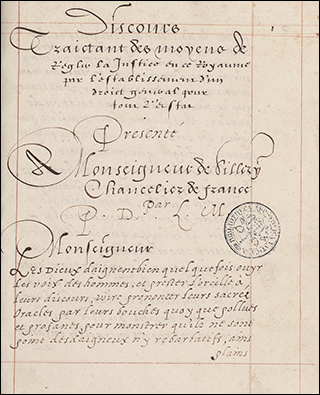 Discours
Traictant des moyens de
Regler la Justice en ce Royaume
par l'establissement d'un
droict general pour
tout l'estat
Presenté
A
Monseigneur de Sillery
Chancelier de france
Par
P. D. L. M.
Monseigneur
Les Dieux daignent bien quelquefois ouyr
les voix des hommes, et prester l'oreille à
leurs discours, voire prononcer leurs sacrez
Oracles par leurs bouches quoy que pollues
et profanes, pour monstrer qu'ils ne sont
point desdaigneux ny rebarbatifs, ains